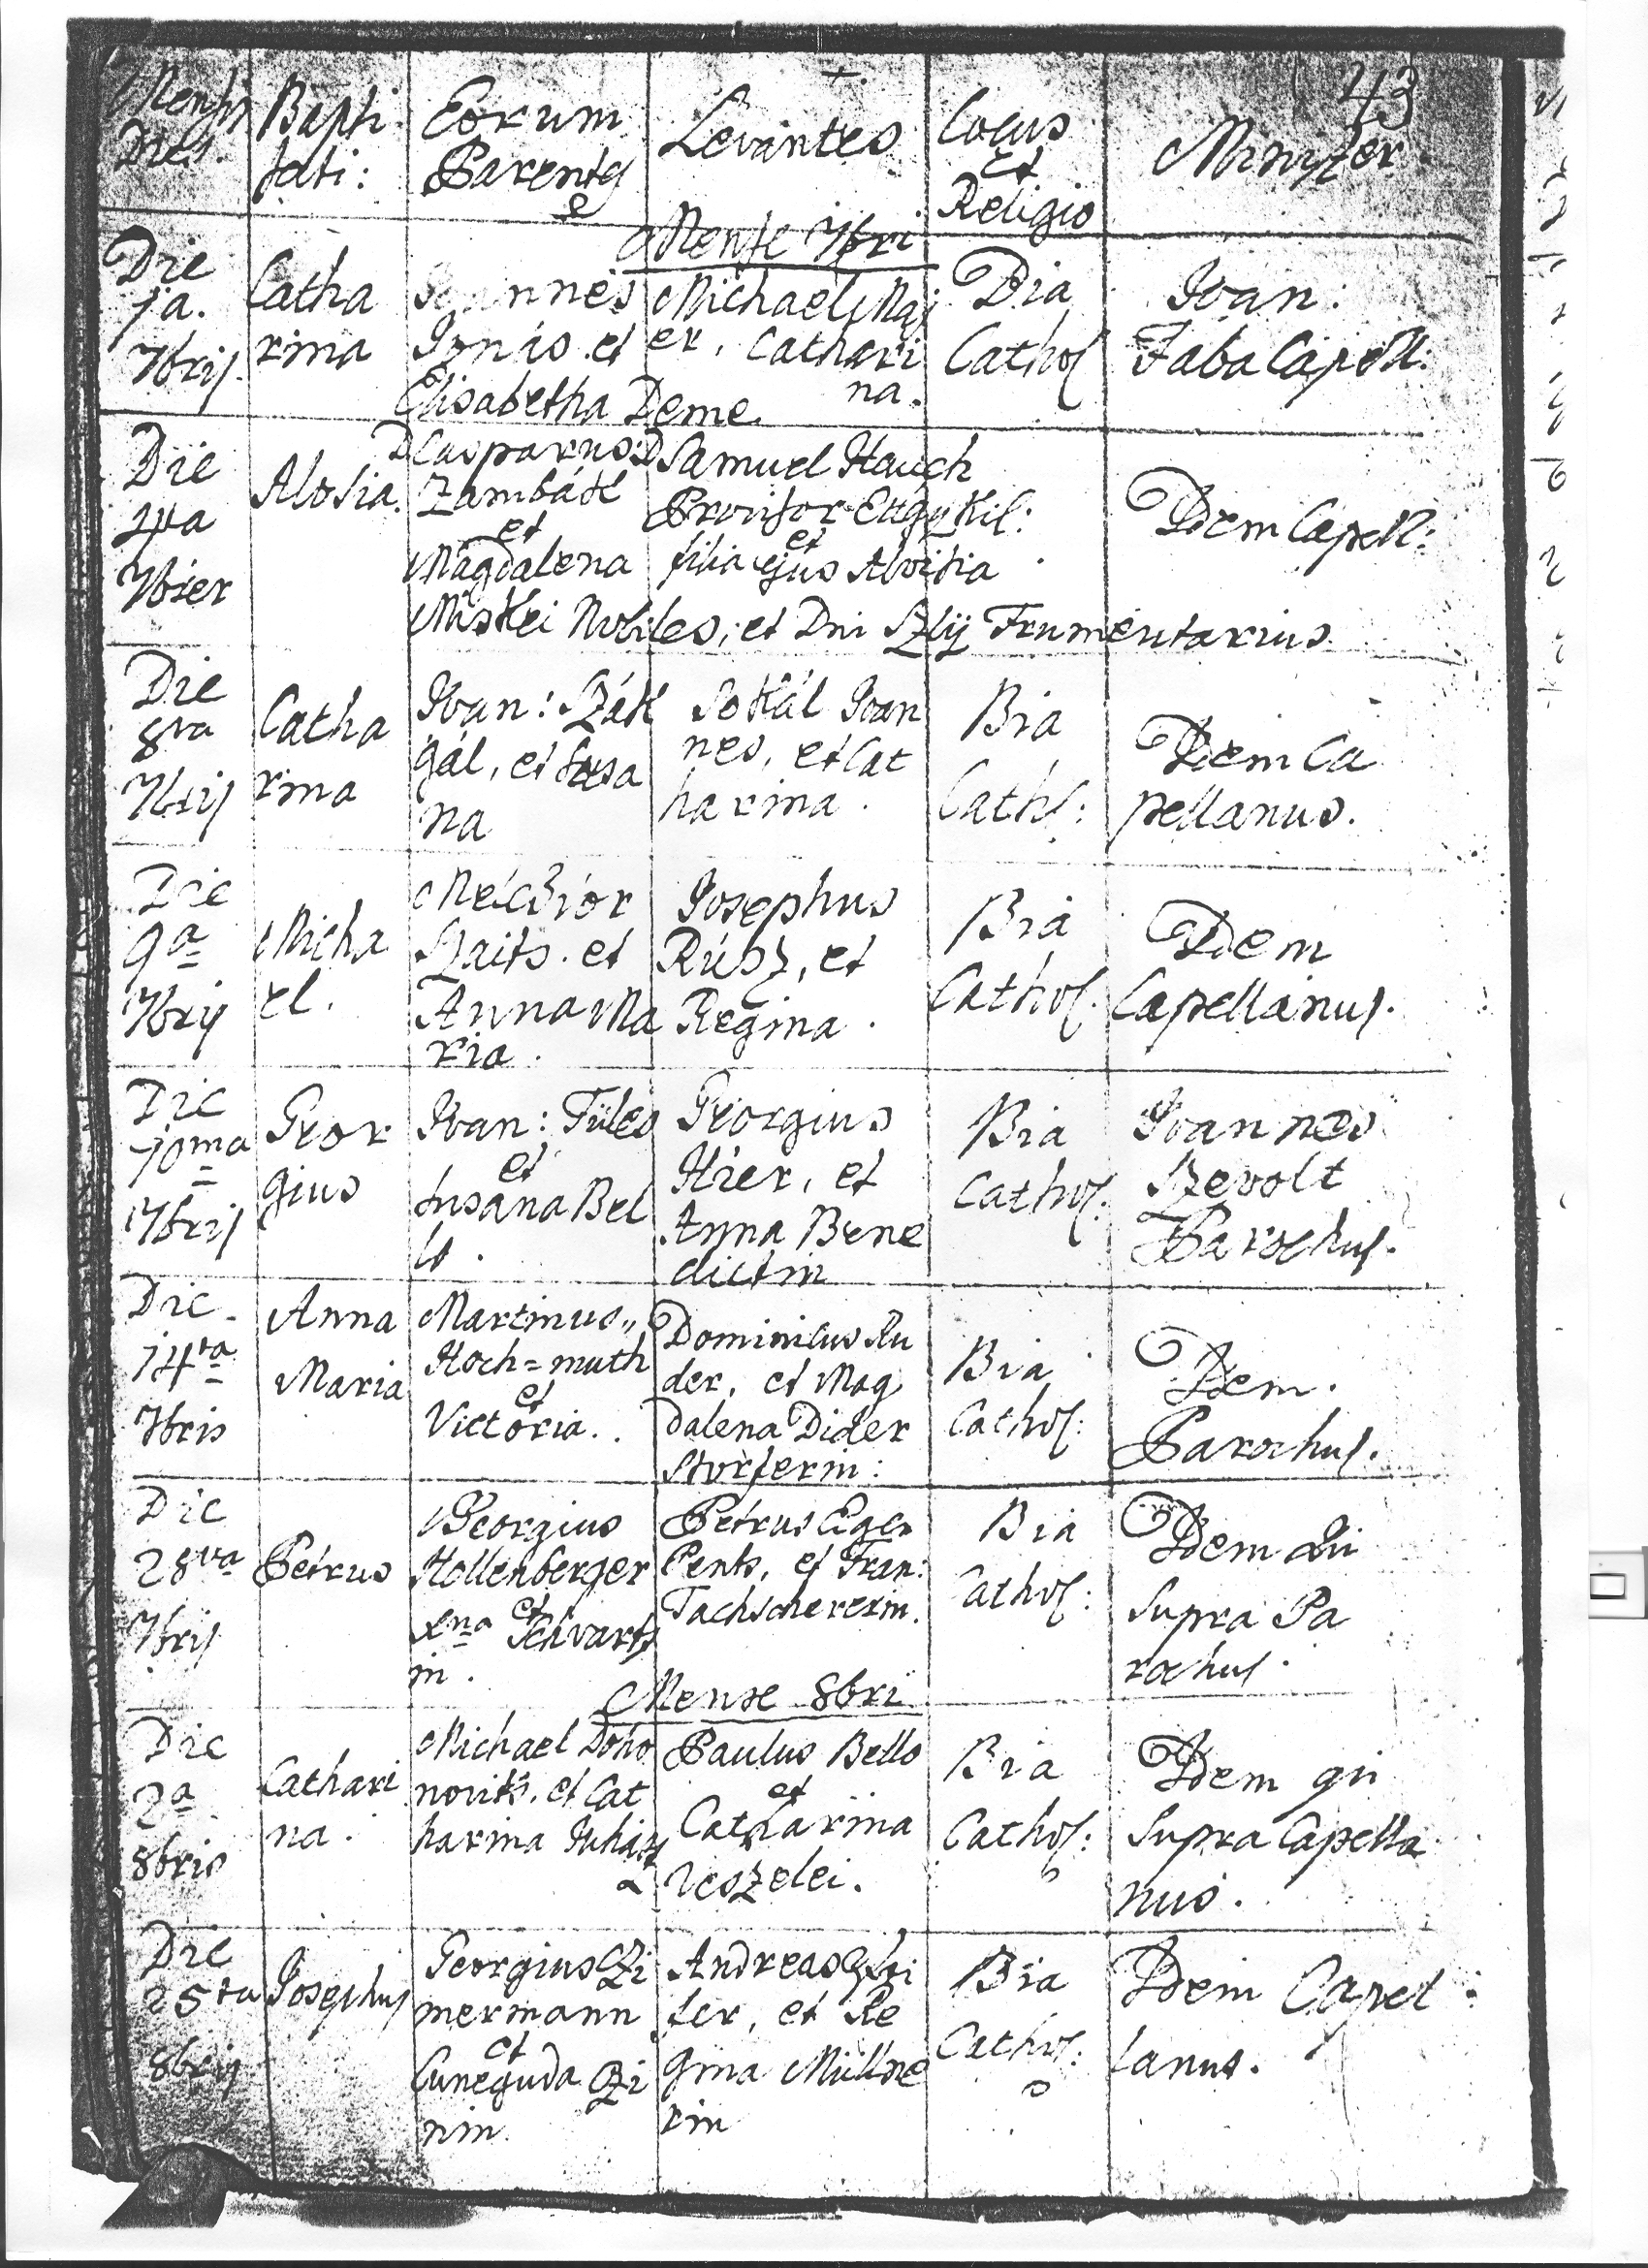 43
Mensis Dies.
Bapti
sati:
Eorum
Parentes
Levantes
Locus
et
Religio
Minister
Mense 7bri
Die
1a.
7bris
Catha
rina
Joannes
Ignás et
Elisabetha Deme.
Michael Maj
er, Cathari
na.
Bia
Cathol
Joan:
Faba Capell:
Die
4ta
7bier
Alosia.
D Casparus
Zambák
et
Magdalena
Miskei Nobiles, et Dni Szlij Frumentarius
Samuel Hauch
Provisor
et
filia ejus Aloisia
Idem Capell:
Die
8va
7bris
Catha
rina
Joan: Szák
gál, et Susa
na
Sokál Joan
nes, et Cat
harina.
Bia
Cathol:
Idem Ca
pellanus.
Die
9a
7bris
Micha
el.
Melchior
Szaits. et
Anna Ma
ria.
Josephus
Rúsz, et
Regina.
Bia
Cathol.
Idem
Capellanus.
Die
10ma
7bris
Geor
gius
Joan: Füles
et
Susana Bel
ls.
Georgius
Hier, et
Anna Bene
dictin
Bia
Cathol:
Joannes
Szevolt
Parochus.
Die
14ta
7bris
Anna
Maria
Martinus
Hoch=muth
et
Victoria..
Dominicus Au
der, et Mag
dalena Dider
Storferin:
Bia
Cathol:
Idem.
Parochus.
Die
28va
7bris
Petrus
Georgius
Hollenberger
et
Xna Schvarts
in.
Petrus Egen
Pents, et Fran:
Tachschererin.
Bia
Cathol:
Idem qui
Supra Pa
rochus.
Mense 8bri
Die
2a
8bris
Cathari
na.
Michael Doho
novits, et Cat
harina Juhász
Paulus Bello
et
Catharina
Veszelei.
Bia
Cathol:
Idem qui
Supra Capella
nus.
Die
25ta
8bris
Josephus
Georgius Czi
mermann
et
Cuneguda Czi
nin.
Andreas
fer, et Re
gina Müllne
rin
Bia
Cathol:
Idem Capel
lanus.